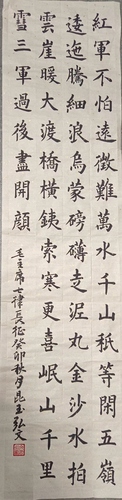 紅軍不怕遠徵難萬水千山秖等閑五嶺
逶迤騰細浪烏蒙磅礴走泥丸金沙水拍
雲崖暖大渡橋橫銕索寒更喜岷山千里
雪三軍過後盡開顏
毛主席七律長征癸卯秋月昆玉弘文